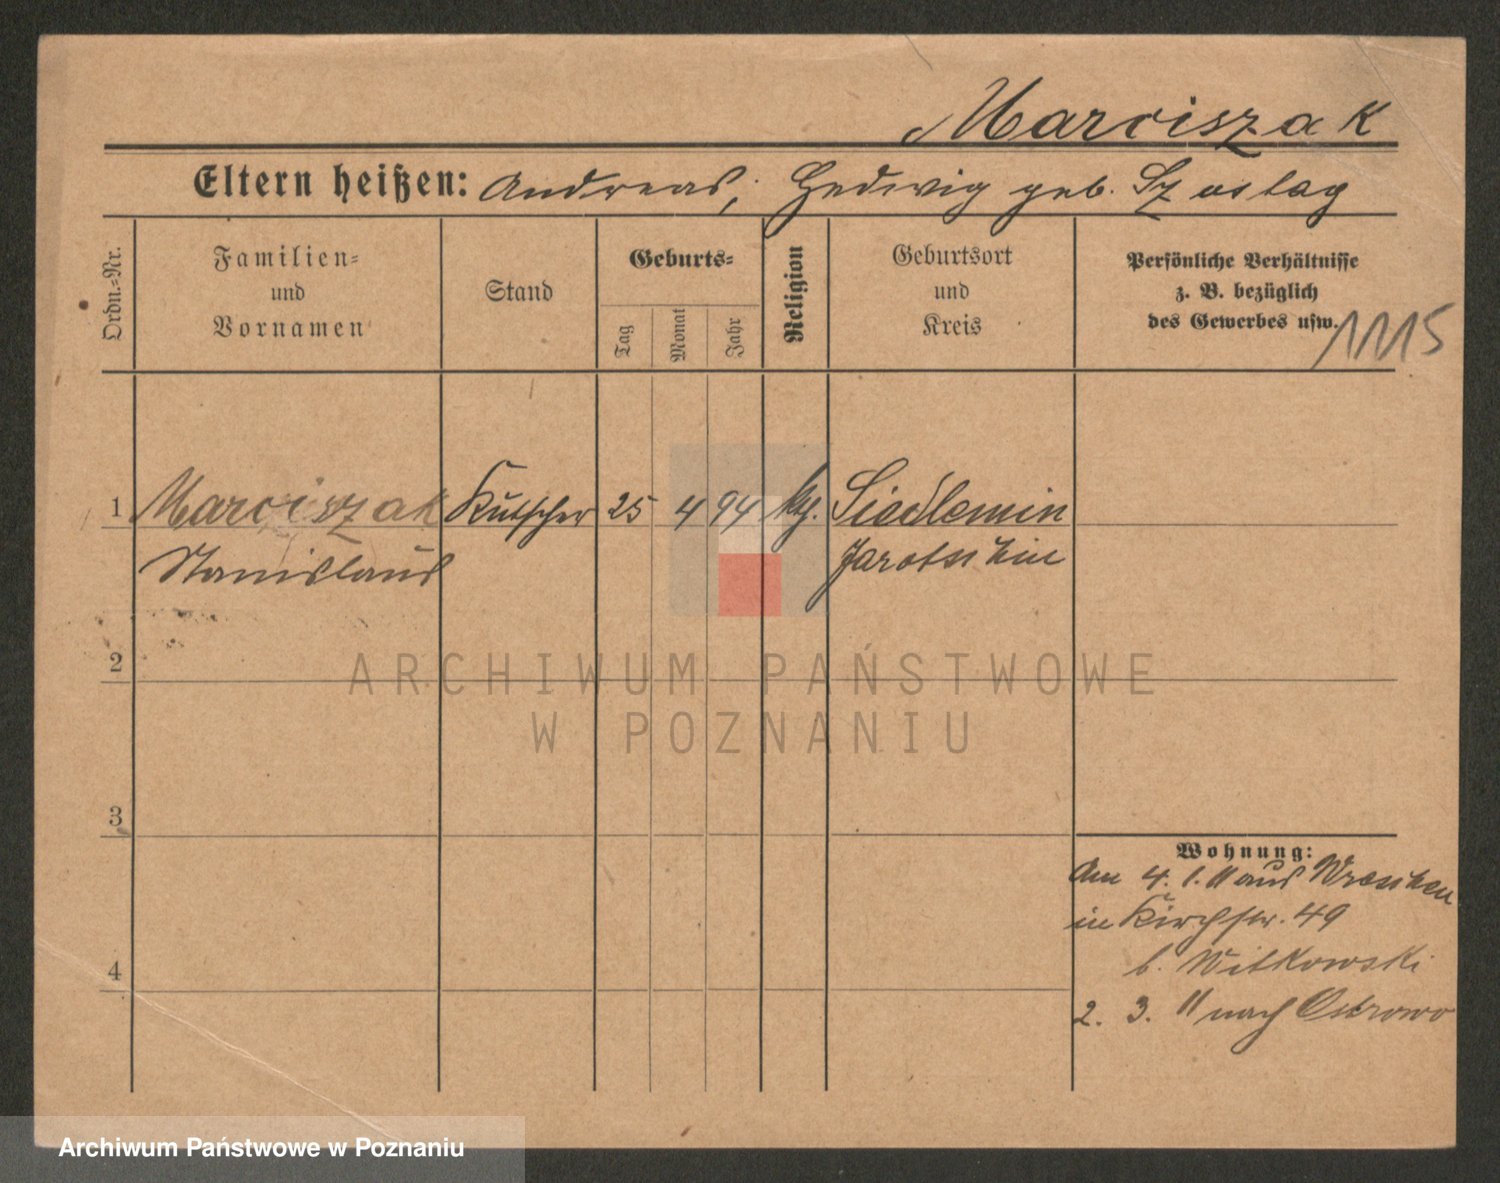 Marciszak
Eltern heißen: Andreas, Hedwig geb. Szostag
Ordn.-Nr.
Familien-
und
Vornamen
Stand
Geburts-
Tag
Monat
Jahr
Religion
Geburtsort
und
Kreis
Persönliche Verhältnisse
z. B. bezüglich
des Gewerbes usw.
1115
1 Marciszak Kutscher 25 4 94 kth. Siedlemin
Stanislaus Jarotschin
2
3
4
Wohnung:
Am 4. 1. 11 aus Wreschen
in Kirchstr. 49
b. Witkowski
2. 3. 11 nach Ostrowo
ARCHIWUM PAŃSTWOWE
W POZNANIU
Archiwum Państwowe w Poznaniu